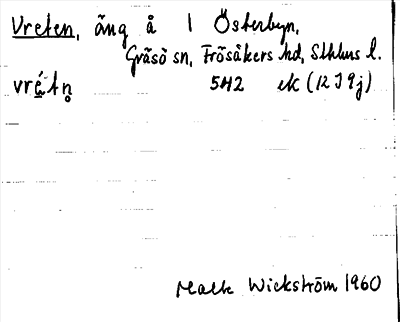 Vreten, äng å 1 Österbyn,
Gräsö sn, Frösåkers hd, Sthlms l.
vrétn̥ 5H2 ek (12 I 9j)
Wickström 1960